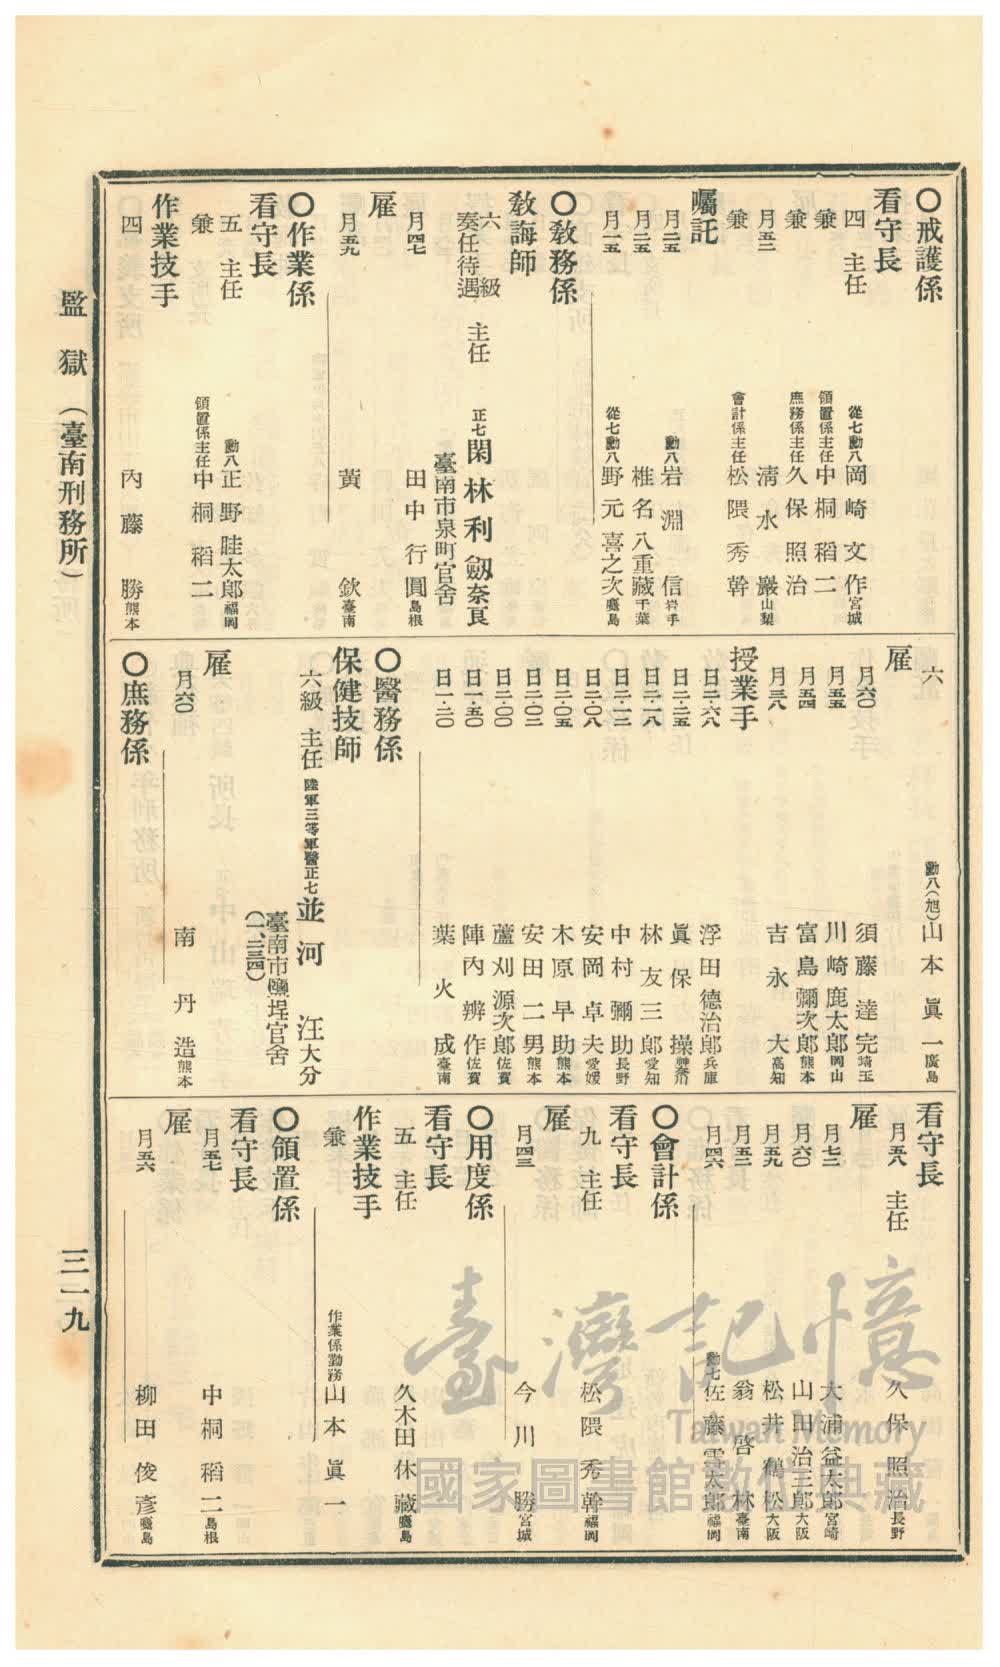 〇戒護係
看守長
四 主任 從七勳八 岡崎文作 宮城
兼 領置係主任 中桐稻二
兼 庶務係主任 久保照治
月五二 淸水巖 山梨
兼 會計係主任 松隈秀幹
囑託
月二五 勳八 岩淵信 岩手
月二五 椎名八重藏 千葉
月一五 從七勳八 野元喜之次 鹿兒島
〇敎務係
敎誨師
六級 奏任待遇 主任 正七 閑林利劔 奈良
臺南市泉町官舍
月四七 田中行圓 島根
雇
月五九 黃欽 臺南
〇作業係
看守長
五 主任 勳八 正野眭太郎 福岡
兼 領置係主任 中桐稻二
作業技手
四 內藤勝 熊本
六 勳八(旭) 山本眞一 廣島
雇
月六〇 須藤達完 埼玉
月五五 川崎鹿太郎 岡山
月五四 富島彌次郎 熊本
月三八 吉永大 高知
授業手
日二・六八 浮田德治郎 兵庫
日二・二五 眞保操 神奈川
日二・一八 林友三郎 愛知
日二・一二 中村彌助 長野
日二・〇八 安岡卓夫 愛媛
日二・〇五 木原早助 熊本
日二・〇二 安田二男 熊本
日二・〇〇 蘆刈源次郎 佐賀
日一・五〇 陣內辨作 佐賀
日一・二〇 葉火成 臺南
〇醫務係
保健技師
六級 主任 陸軍三等軍醫正七 並河汪 大分
臺南市鹽埕官舍
(一、二三四)
雇
月六〇 南丹造 熊本
〇庶務係
看守長
月五八 主任 久保照治 長野
雇
月七二 大浦益太郎 宮崎
月六〇 山田治三郎 大阪
月五九 松井鶴松 大阪
月五二 翁啓林 臺南
月四六 勳七 佐藤雲太郎 福岡
〇會計係
看守長
九 主任 松隈秀幹 福岡
雇
月四三 今川勝 宮城
〇用度係
看守長
五 主任 久木田休藏 鹿兒島
作業技手
兼 作業係勤務 山本眞一
〇領置係
看守長
月五七 中桐稻二 島根
雇
月五六 柳田俊彥 鹿兒島
監獄(臺南刑務所)
三一九
臺灣記憶
Taiwan Memory
國家圖書館數位典藏